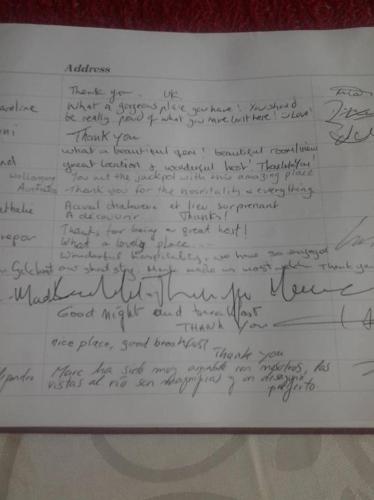 Address
Thank you. UK
aroline What a gorgeous place you have! You should
be really proud of what you have built here!
Thank you
What a beautiful gem! beautiful room/view
great location & wonderful host! Thank you!
Wollongong You hit the jackpot with this amazing place
Australia Thank you for the hospitality & everything
athalie Accueil chaleureux et lieu surprenant
A découvrir Thanks!
Thanks for being a great host!
What a lovely place...
Wonderful hospitality, we have so enjoyed
our short stay. Marc made us most Thank you
Good night and breakfast
THANK YOU
nice place, good breakfast
Thank you
Alejandro Marc ha sido muy amable con nosotros, las
vistas al río son magnificas y un desayuno
perfecto